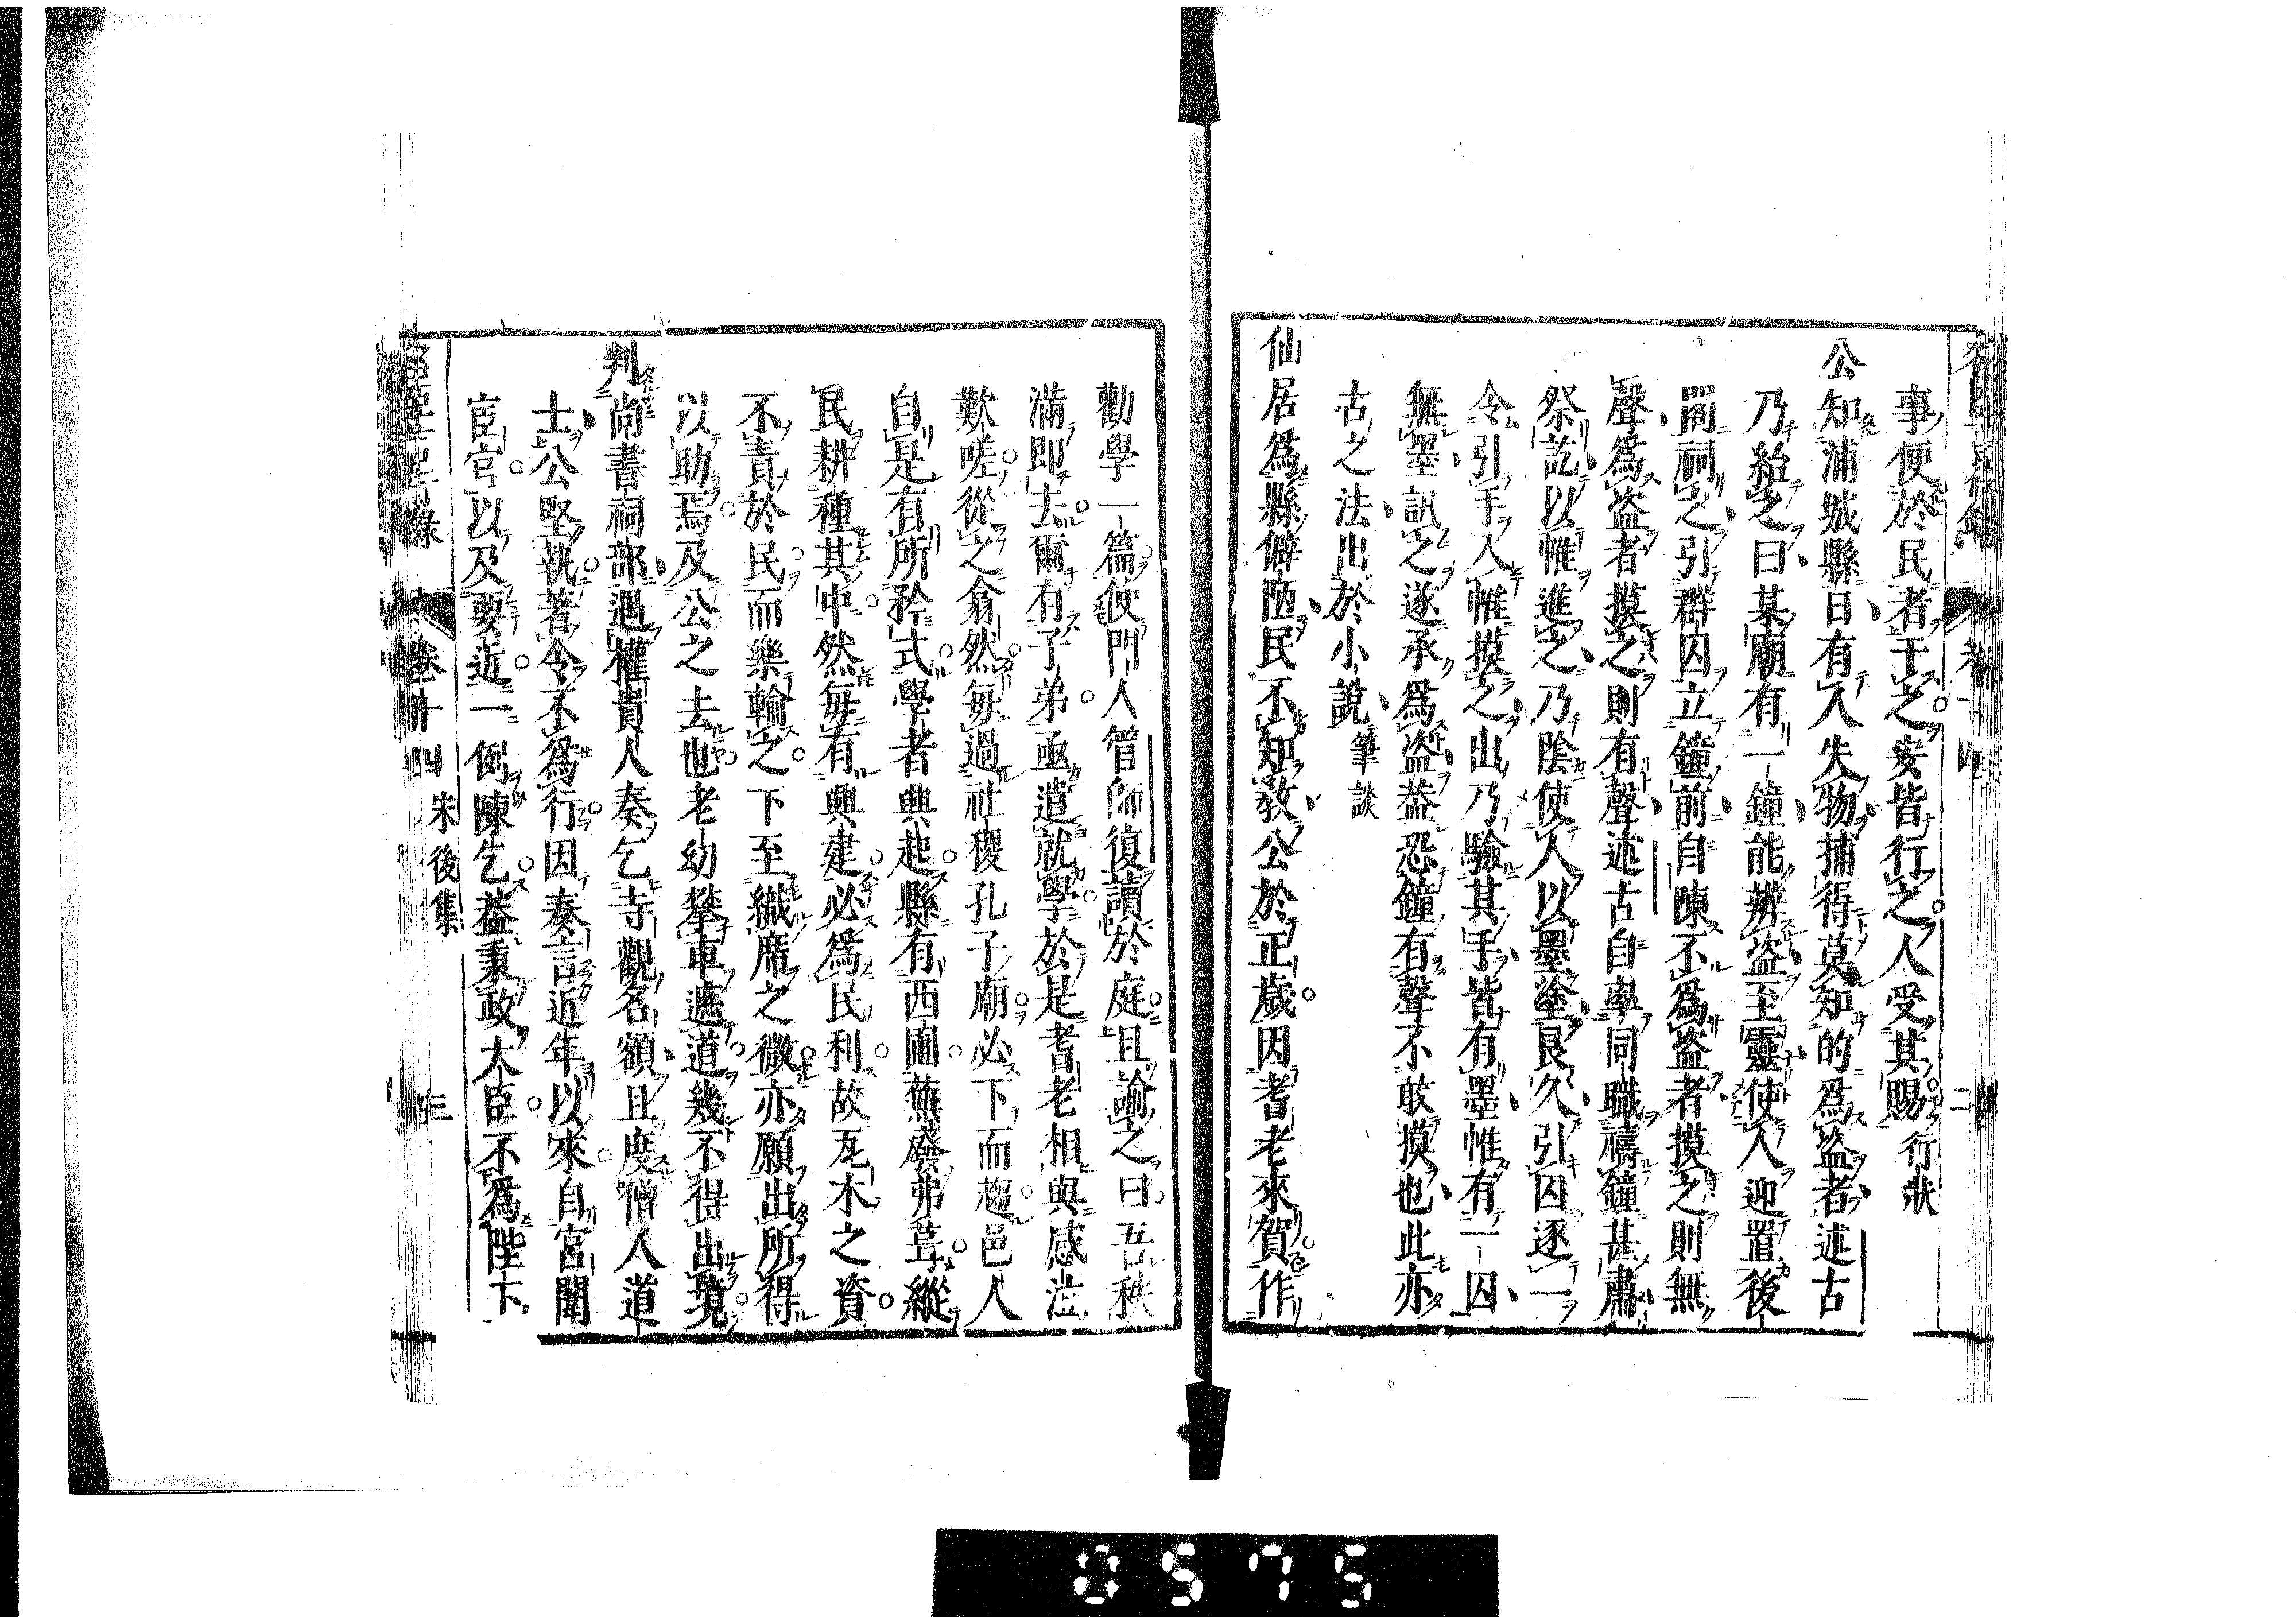 事便於民者干之安皆行之人受其賜行狀
公知浦城縣日有人失物捕得莫知的爲盜者述古
乃紿之曰某廟有一鐘能辨盜至靈使人迎置後
閤祠之引群囚立鐘前自陳不爲盜者摸之則無
聲爲盜者摸之則有聲述古自率同職禱鐘甚肅
祭訖以帷進之乃陰使人以墨塗良久引囚逐一
令引手入帷摸之出乃驗其手皆有墨惟有一囚
無墨訊之遂承爲盜葢恐鐘有聲不敢摸也此亦
古之法出於小說筆談
仙居爲縣僻陋民不知敎公於正歲因耆老來賀作
勸學一篇使門人管師復讀於庭且諭之曰吾秩
滿即去爾有子弟亟遣就學於是耆老相與感泣
歎嗟從之翕然每過社稷孔子廟必下而趨邑人
自是有所矜式學者興起縣有西圃蕪發弗葺縱
民耕種其中然每有興建必爲民利故瓦木之資
不責於民而樂輸之下至織席之微亦願出所得
以助焉及公之去也老幼攀車遮道幾不得出境
判尚書祠部遇權貴人奏乞寺觀名額且度僧人道
士公堅執著令不爲行因奏言近年以來自宮闈
宦官以及要近一例陳乞葢秉政大臣不爲陛下
卷十四 宋後集 三
0575